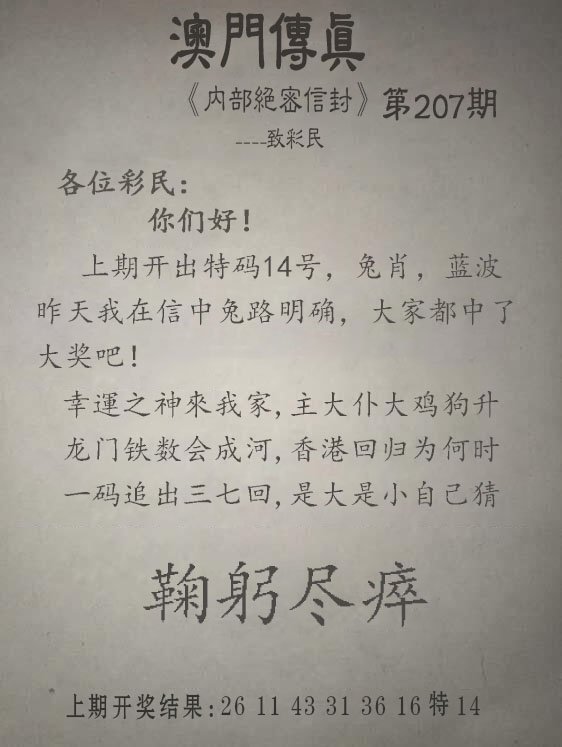 澳門傳真
《内部絕密信封》第207期
----致彩民
各位彩民:
你们好!
上期开出特码14号，兔肖，蓝波
昨天我在信中兔路明确，大家都中了
大奖吧!
幸運之神來我家,主大仆大鸡狗升
龙门铁数会成河,香港回归为何时
一码追出三七回,是大是小自己猜
鞠躬尽瘁
上期开奖结果:26 11 43 31 36 16特14